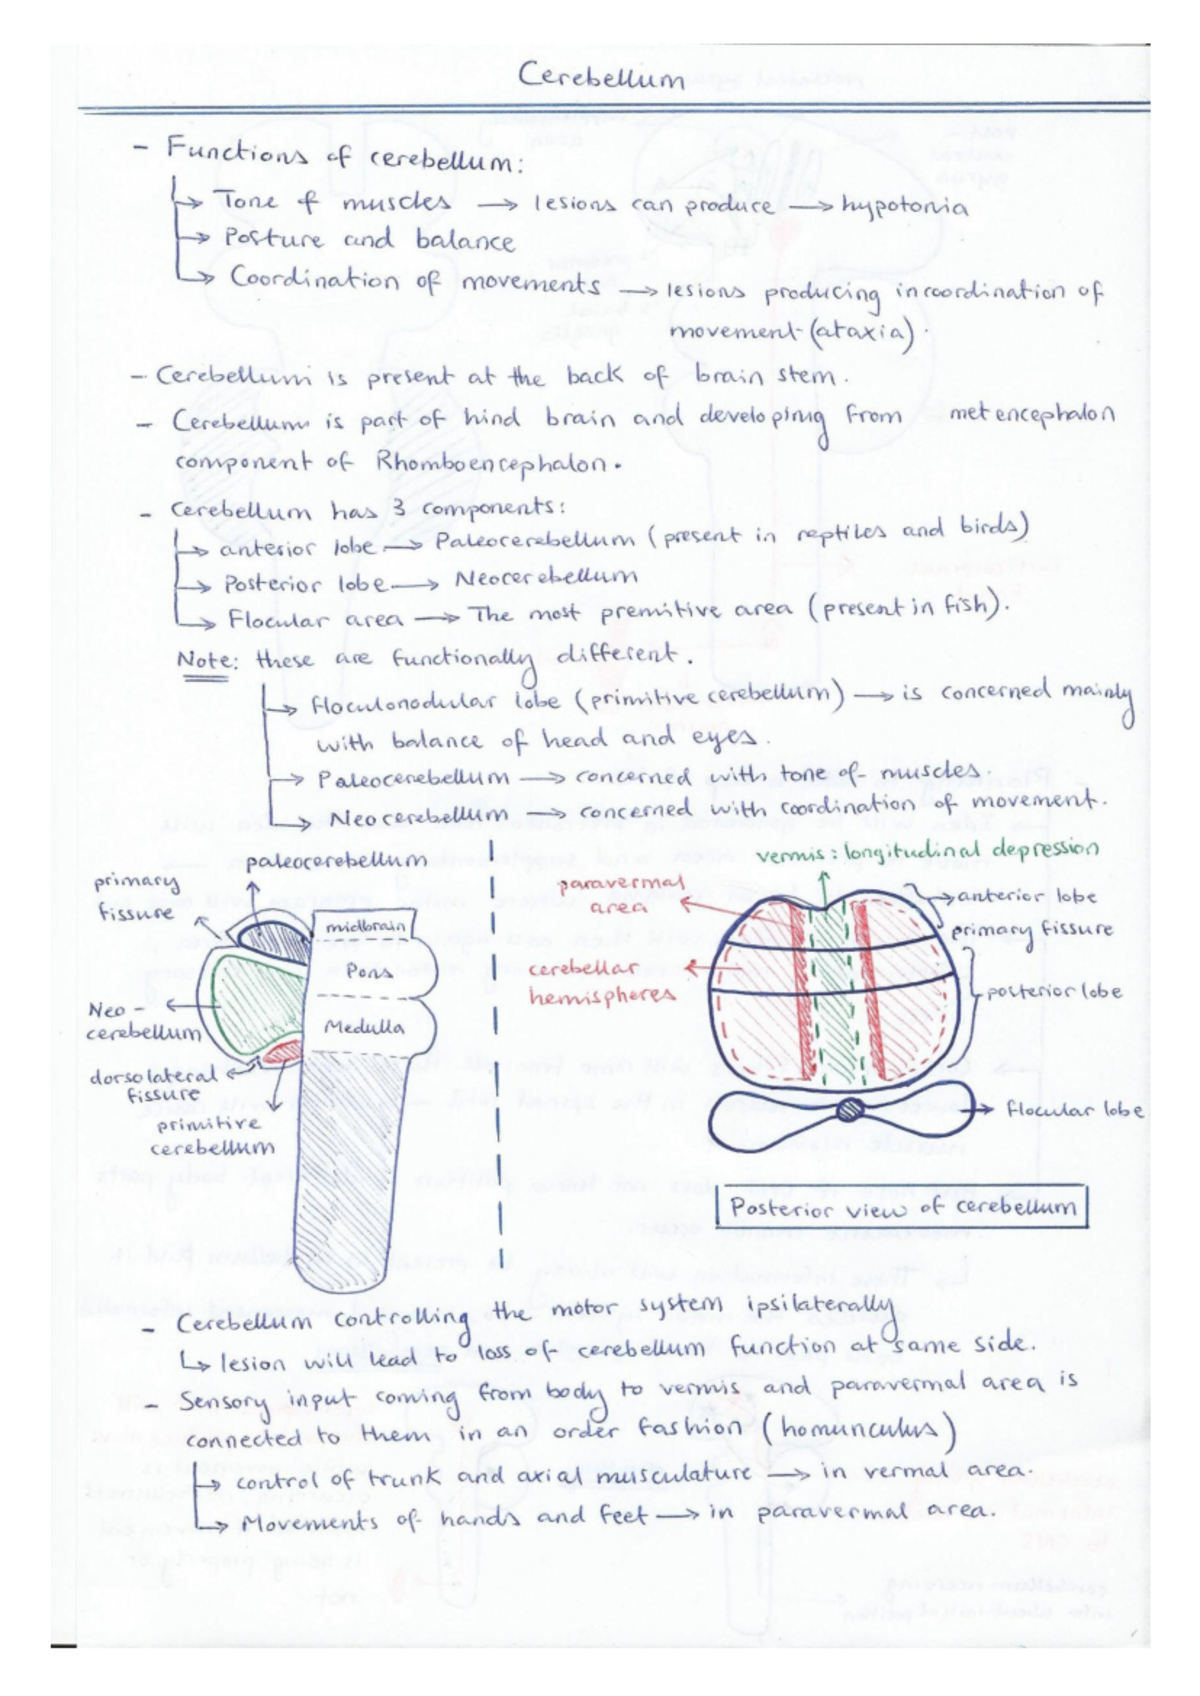 Cerebellum
- Functions of cerebellum:
→ Tone of muscles → lesions can produce → hypotonia
→ Posture and balance
→ Coordination of movements → lesions producing incoordination of
movement (ataxia).
- Cerebellum is present at the back of brain stem.
- Cerebellum is part of hind brain and developing from metencephalon
component of Rhomboencephalon.
- Cerebellum has 3 components:
→ anterior lobe → Paleocerebellum (present in reptiles and birds)
→ Posterior lobe → Neocerebellum
→ Flocular area → The most premitive area (present in fish).
Note: these are functionally different.
→ floculonodular lobe (primitive cerebellum) → is concerned mainly
with balance of head and eyes.
→ Paleocerebellum → concerned with tone of muscles.
→ Neocerebellum → concerned with coordination of movement.
paleocerebellum
primary
fissure
midbrain
Pons
Medulla
Neo-
cerebellum
dorsolateral
fissure
primitive
cerebellum
vermis: longitudinal depression
paravermal
area
anterior lobe
primary fissure
cerebellar
hemispheres
posterior lobe
flocular lobe
Posterior view of cerebellum
- Cerebellum controlling the motor system ipsilaterally
↳ lesion will lead to loss of cerebellum function at same side.
- Sensory input coming from body to vermis and paravermal area is
connected to them in an order fashion (homunculus)
→ control of trunk and axial musculature → in vermal area.
→ Movements of hands and feet → in paravermal area.